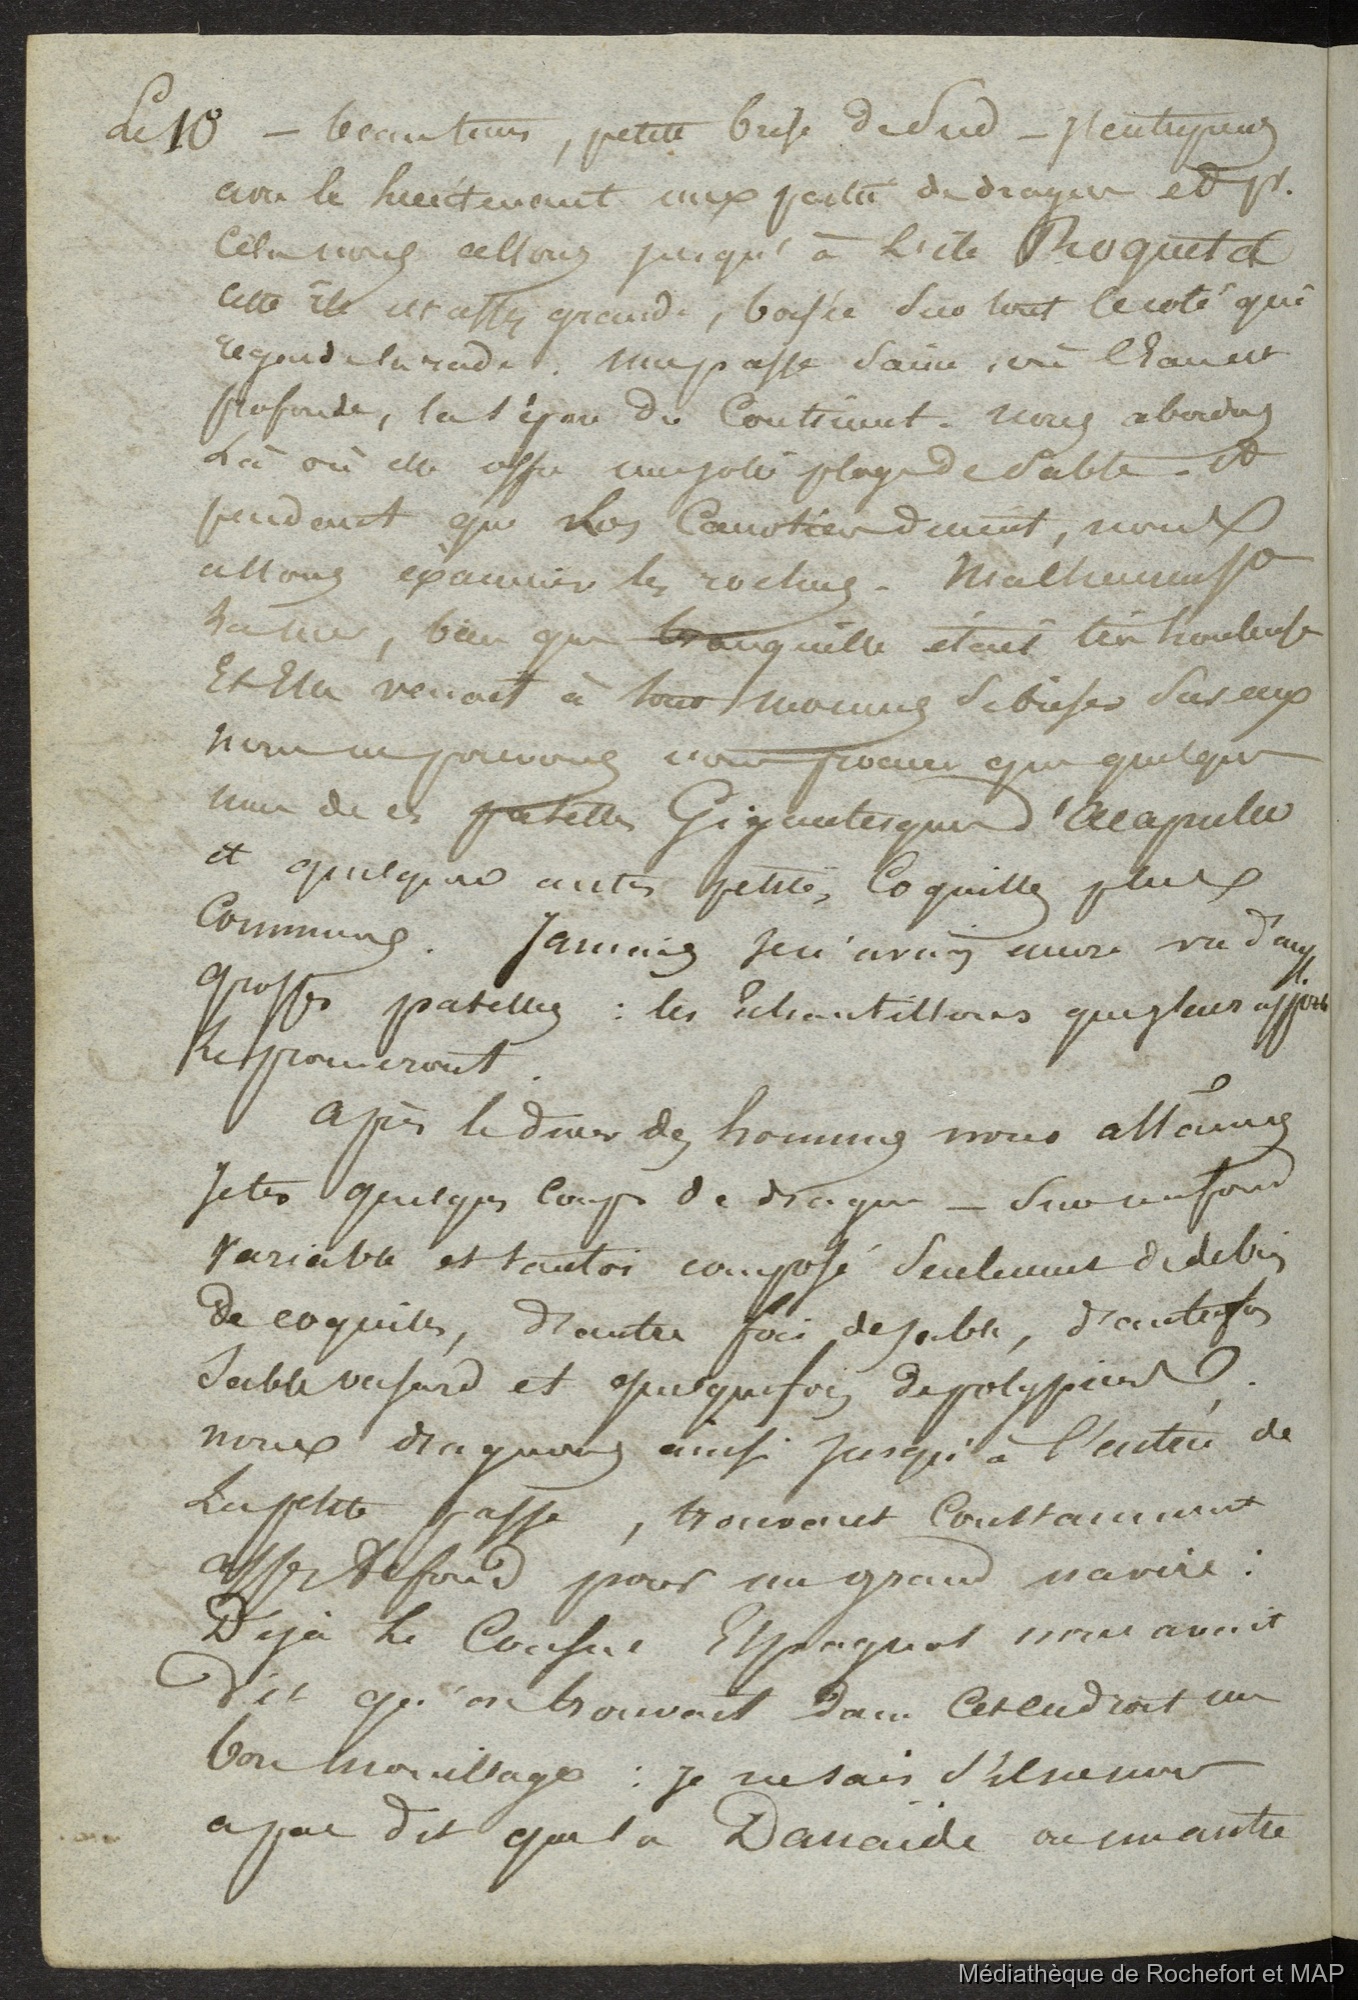 Le 10 – beau tems, petite brise de Sud – J'entreprens
avec le lieutenant une partie de drague et pr.
cela nous allons jusqu'à l'ile Roqueta
cette île est assez grande, boisée sur tout le coté qui
regarde la rade. une passe saine, où l'Eau est
profonde, la sépare du Continent. nous abordons
Là où elle offre une jolie plage de Sable – et
pendant que Los Canotiers dinent, nous
allons éxaminer les rochers. Malheureuset
La mer, bien que tranquille était très houleuse
Et Elle venait à tous momens se briser sur eux
nous ne pouvons nous procurer que quelques
unes de ces patelles Gigantesques d'Acapulco
et quelques autres petites Coquilles plus
Communes. Jamais je n'avais encore vu d'aussi
grosses patelles : les Echantillons que j'en rapporte
Le prouveront.
Après le diner des hommes nous allâmes
Jeter quelques coups de drague – Sur un fond
Variable et tantôt composé seulement de debris
de coquilles, d'autre fois de sable, d'autrefois
Sable vasard et quelquefois de polypiers.
nous draguons ainsi jusqu'à l'entrée de
La petite passe, trouvant Constamment
assez de fond pour un grand navire :
Déja Le Consul Espagnol nous avait
dit qu'on trouvait dans Cet endroit un
bon mouillage : je ne sais s'il ne nous
a pas dit que la Danaïde ou un autre
Médiathèque de Rochefort et MAP